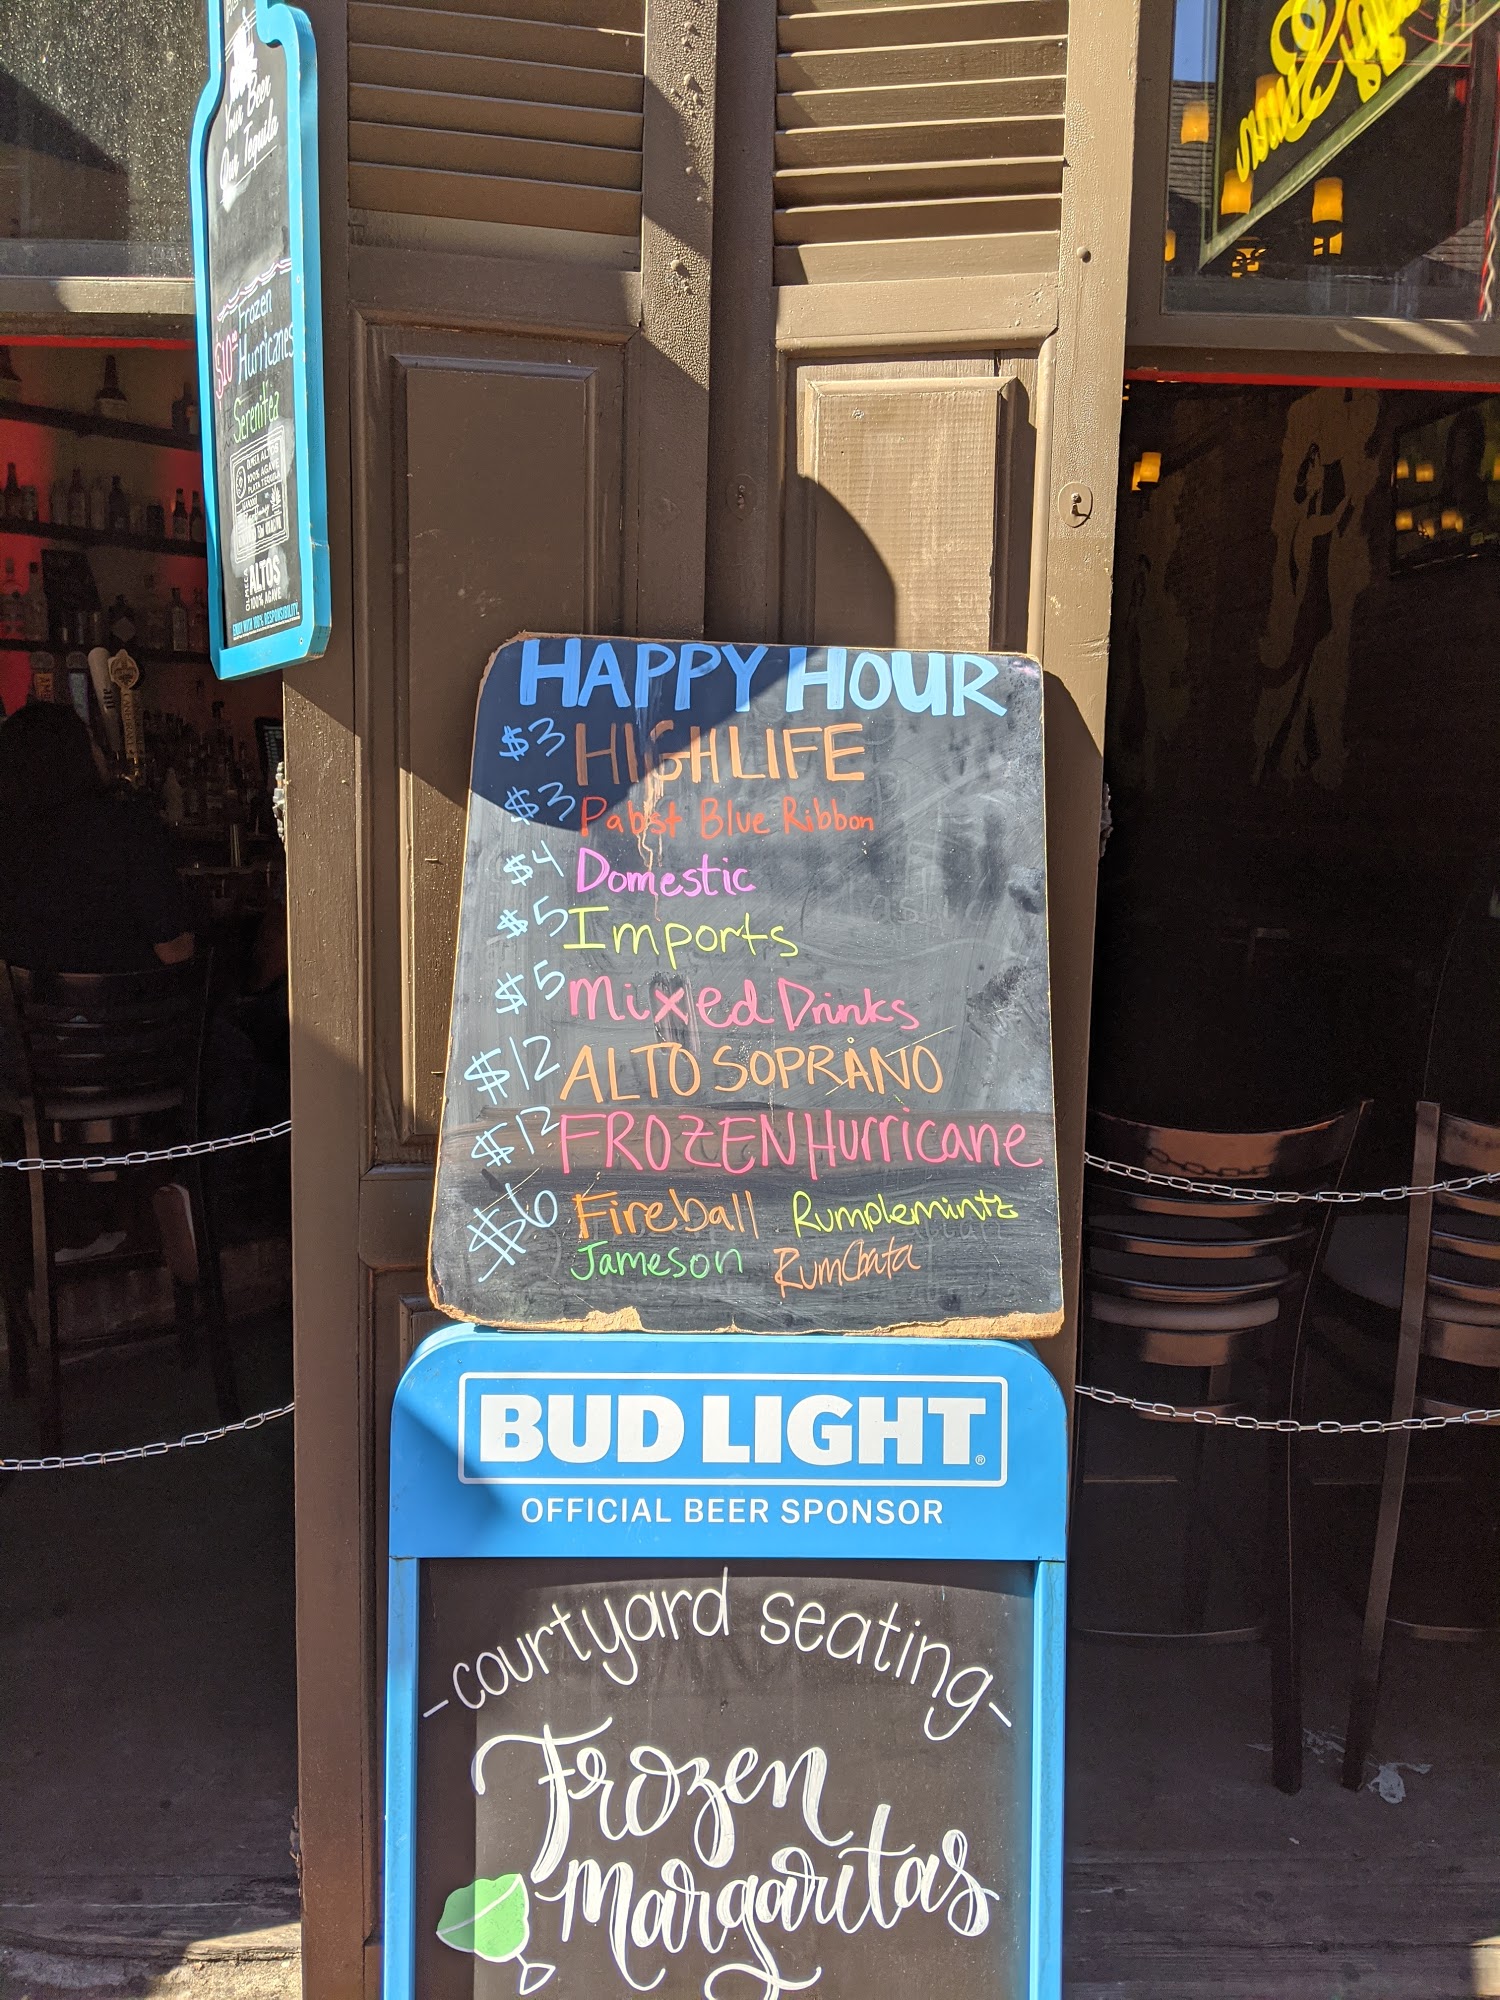 Your Beer
Our Tequila
$10 Frozen
Hurricanes
Serenitea
OLMECA ALTOS
100% AGAVE
PLATA TEQUILA
OLMECA
ALTOS
100% AGAVE
ENJOY WITH 100% RESPONSIBILITY.
HAPPY HOUR
$3 HIGHLIFE
$3 Pabst Blue Ribbon
$4 Domestic
$5 Imports
$5 Mixed Drinks
$12 ALTO SOPRANO
$12 FROZEN Hurricane
$6 Fireball Rumplemintz
Jameson RumChata
BUD LIGHT®
OFFICIAL BEER SPONSOR
-courtyard seating-
Frozen
Margaritas